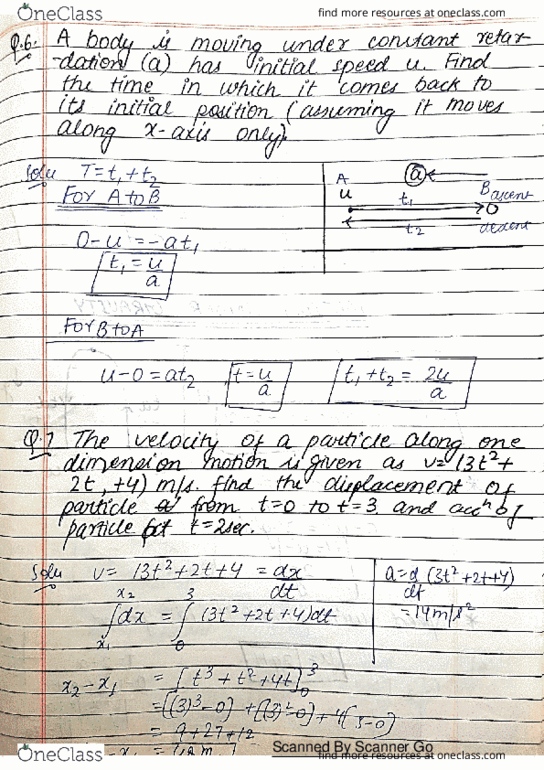 OneClass
find more resources at oneclass.com
Q.6. A body is moving under constant retar
-dation (a) has initial speed u. Find
the time in which it comes back to
its initial position (assuming it moves
along x-axis only).
Solu T = t₁ + t₂
For A to B
0-u = -at₁
t₁ = u/a
A
u
a
B ascent
t₁
O
t₂
descent
For B to A
u-0 = at₂
t = u/a
t₁ + t₂ = 2u/a
Q.7 The velocity of a particle along one
dimension motion is given as v= (3t²+
2t, +4) m/s. find the displacement of
particle from t=0 to t=3 and accⁿ of
particle at t=2sec.
Solu v = (3t²+2t+4 = dx/dt
∫dx = ∫(3t²+2t+4)dt
x₂
x₁
3
0
a = d/dt (3t²+2t+4)
= 14m/s²
x₂-x₁ = [t³+t²+4t]₀³
= ((3)³-0) + ((3)²-0) + 4(3-0)
= 9+27+12
Scanned By Scanner Go
OneClass
find more resources at oneclass.com